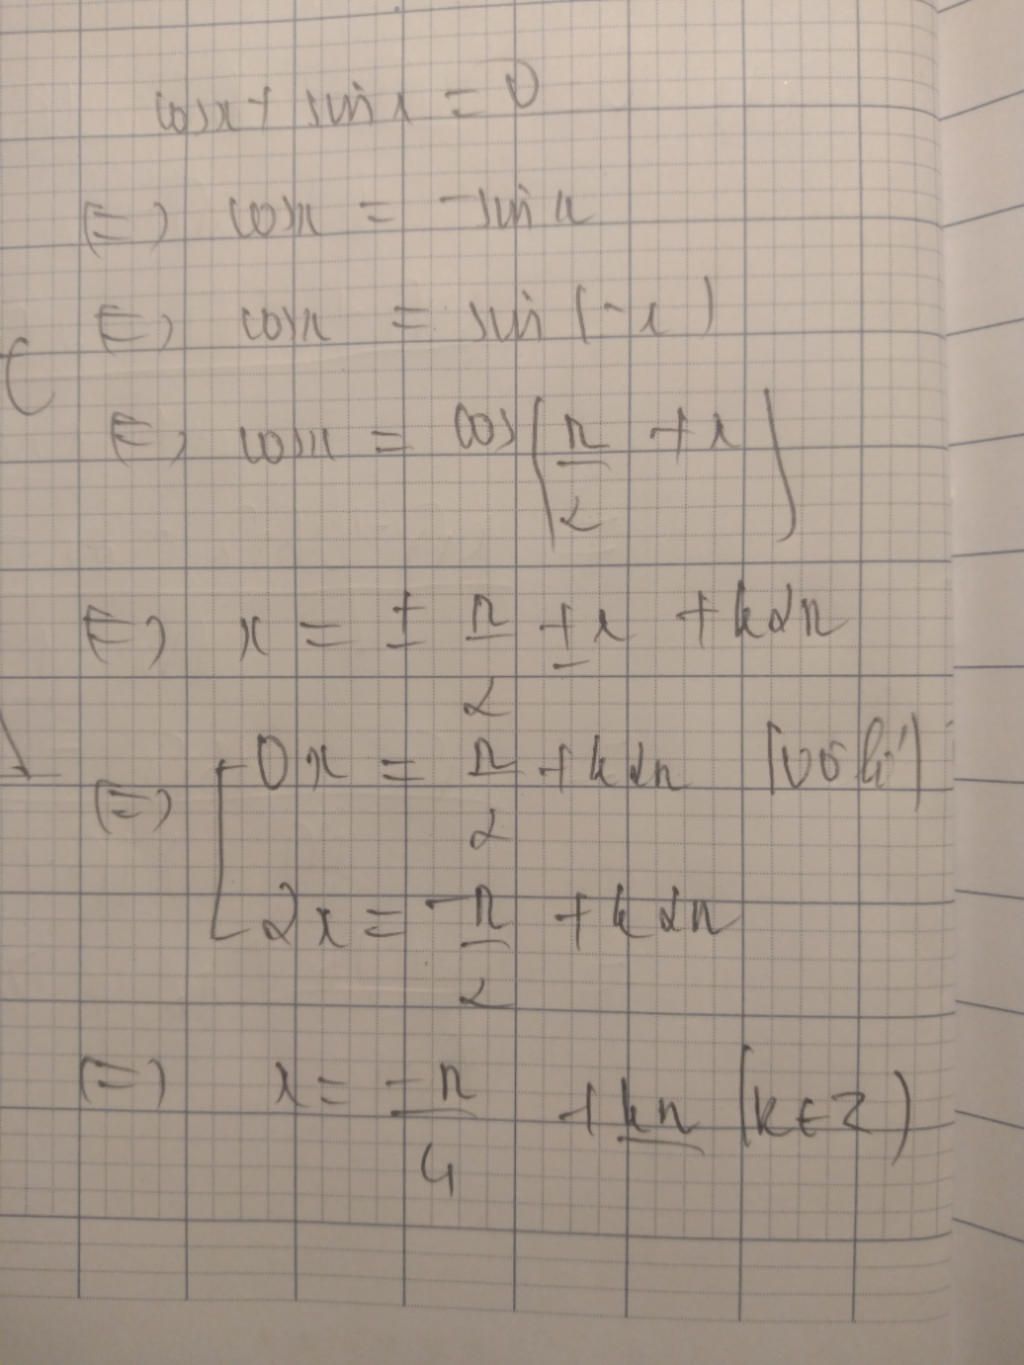 cosx + sin x = 0
⇔ cosx = -sin x
⇔ cosx = sin (-x)
⇔ cosx = cos(π/2 + x)
⇔ x = ± π/2 ± x + k2π
⇔ [ 0x = π/2 + k2π (vô lí)
2x = -π/2 + k2π
⇔ x = -π/4 + kπ (k∈Z)